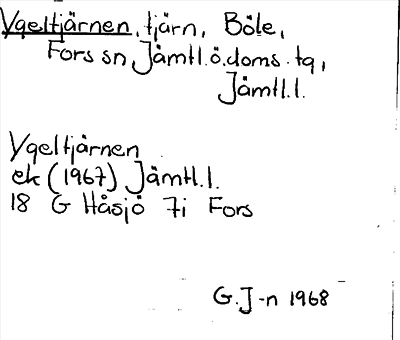 Ygeltjärnen, tjärn, Böle,
Fors sn, Jämtl.ö.doms.tg,
Jämtl.l.
Ygeltjärnen
ek (1967) Jämtl.l.
18 G Håsjö 7i Fors
G.J-n 1968